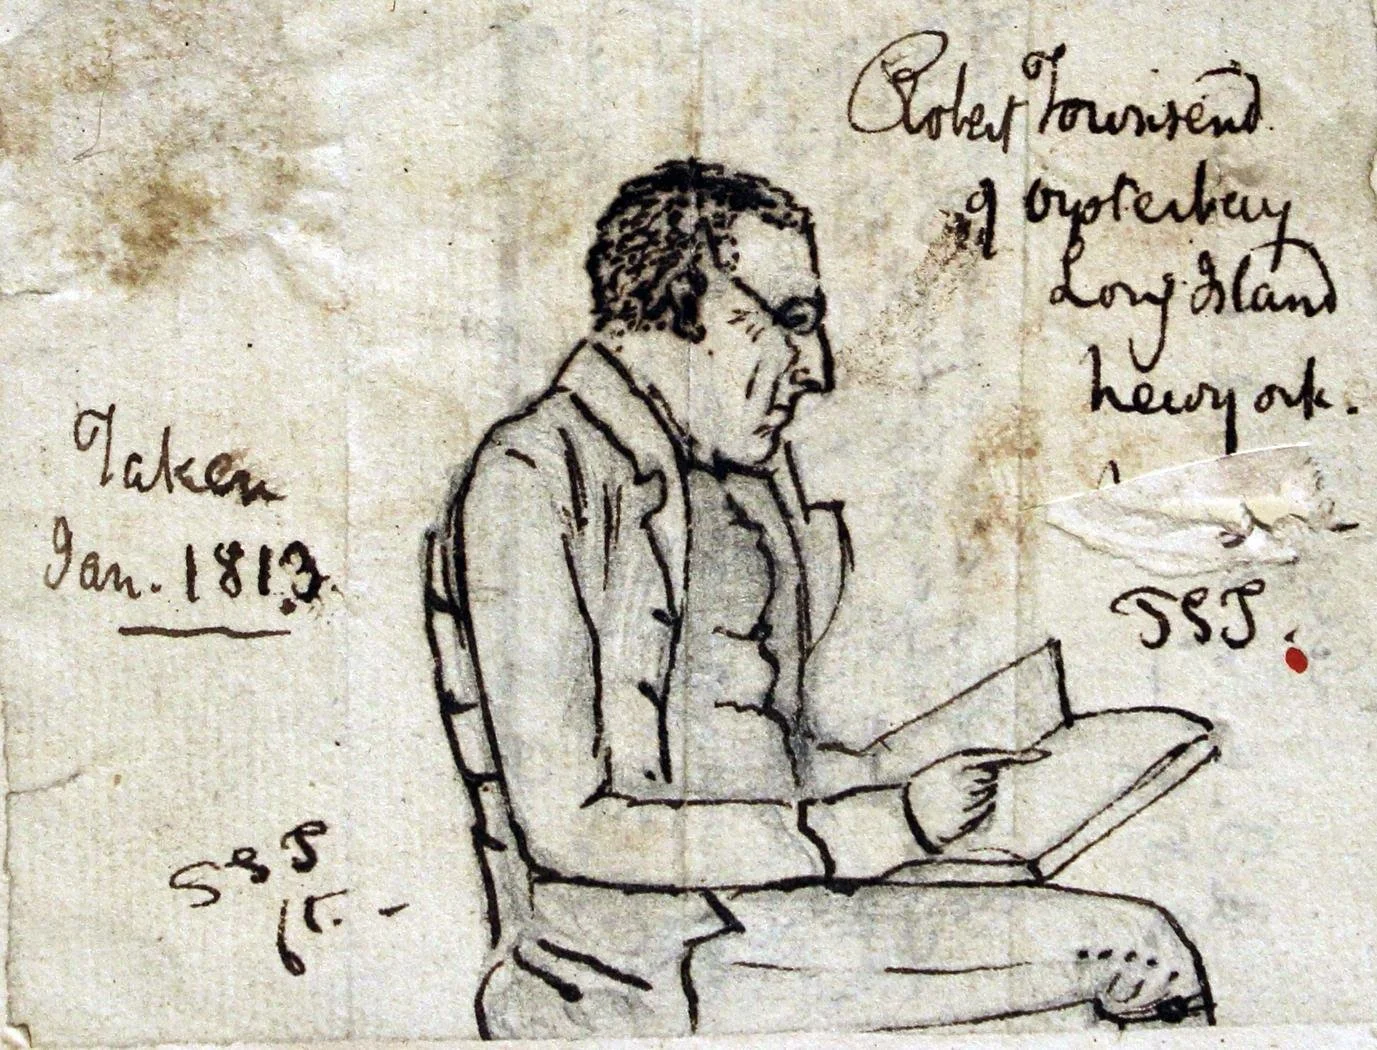 Robert Townsend.
of oysterbay
Long Island
newyork.
TST.
Taken
Jan. 1813.
SST